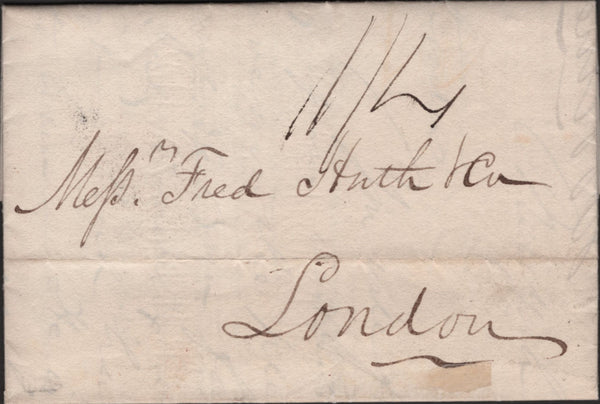 11/4
Meſsrs. Fred Huth & Co
London